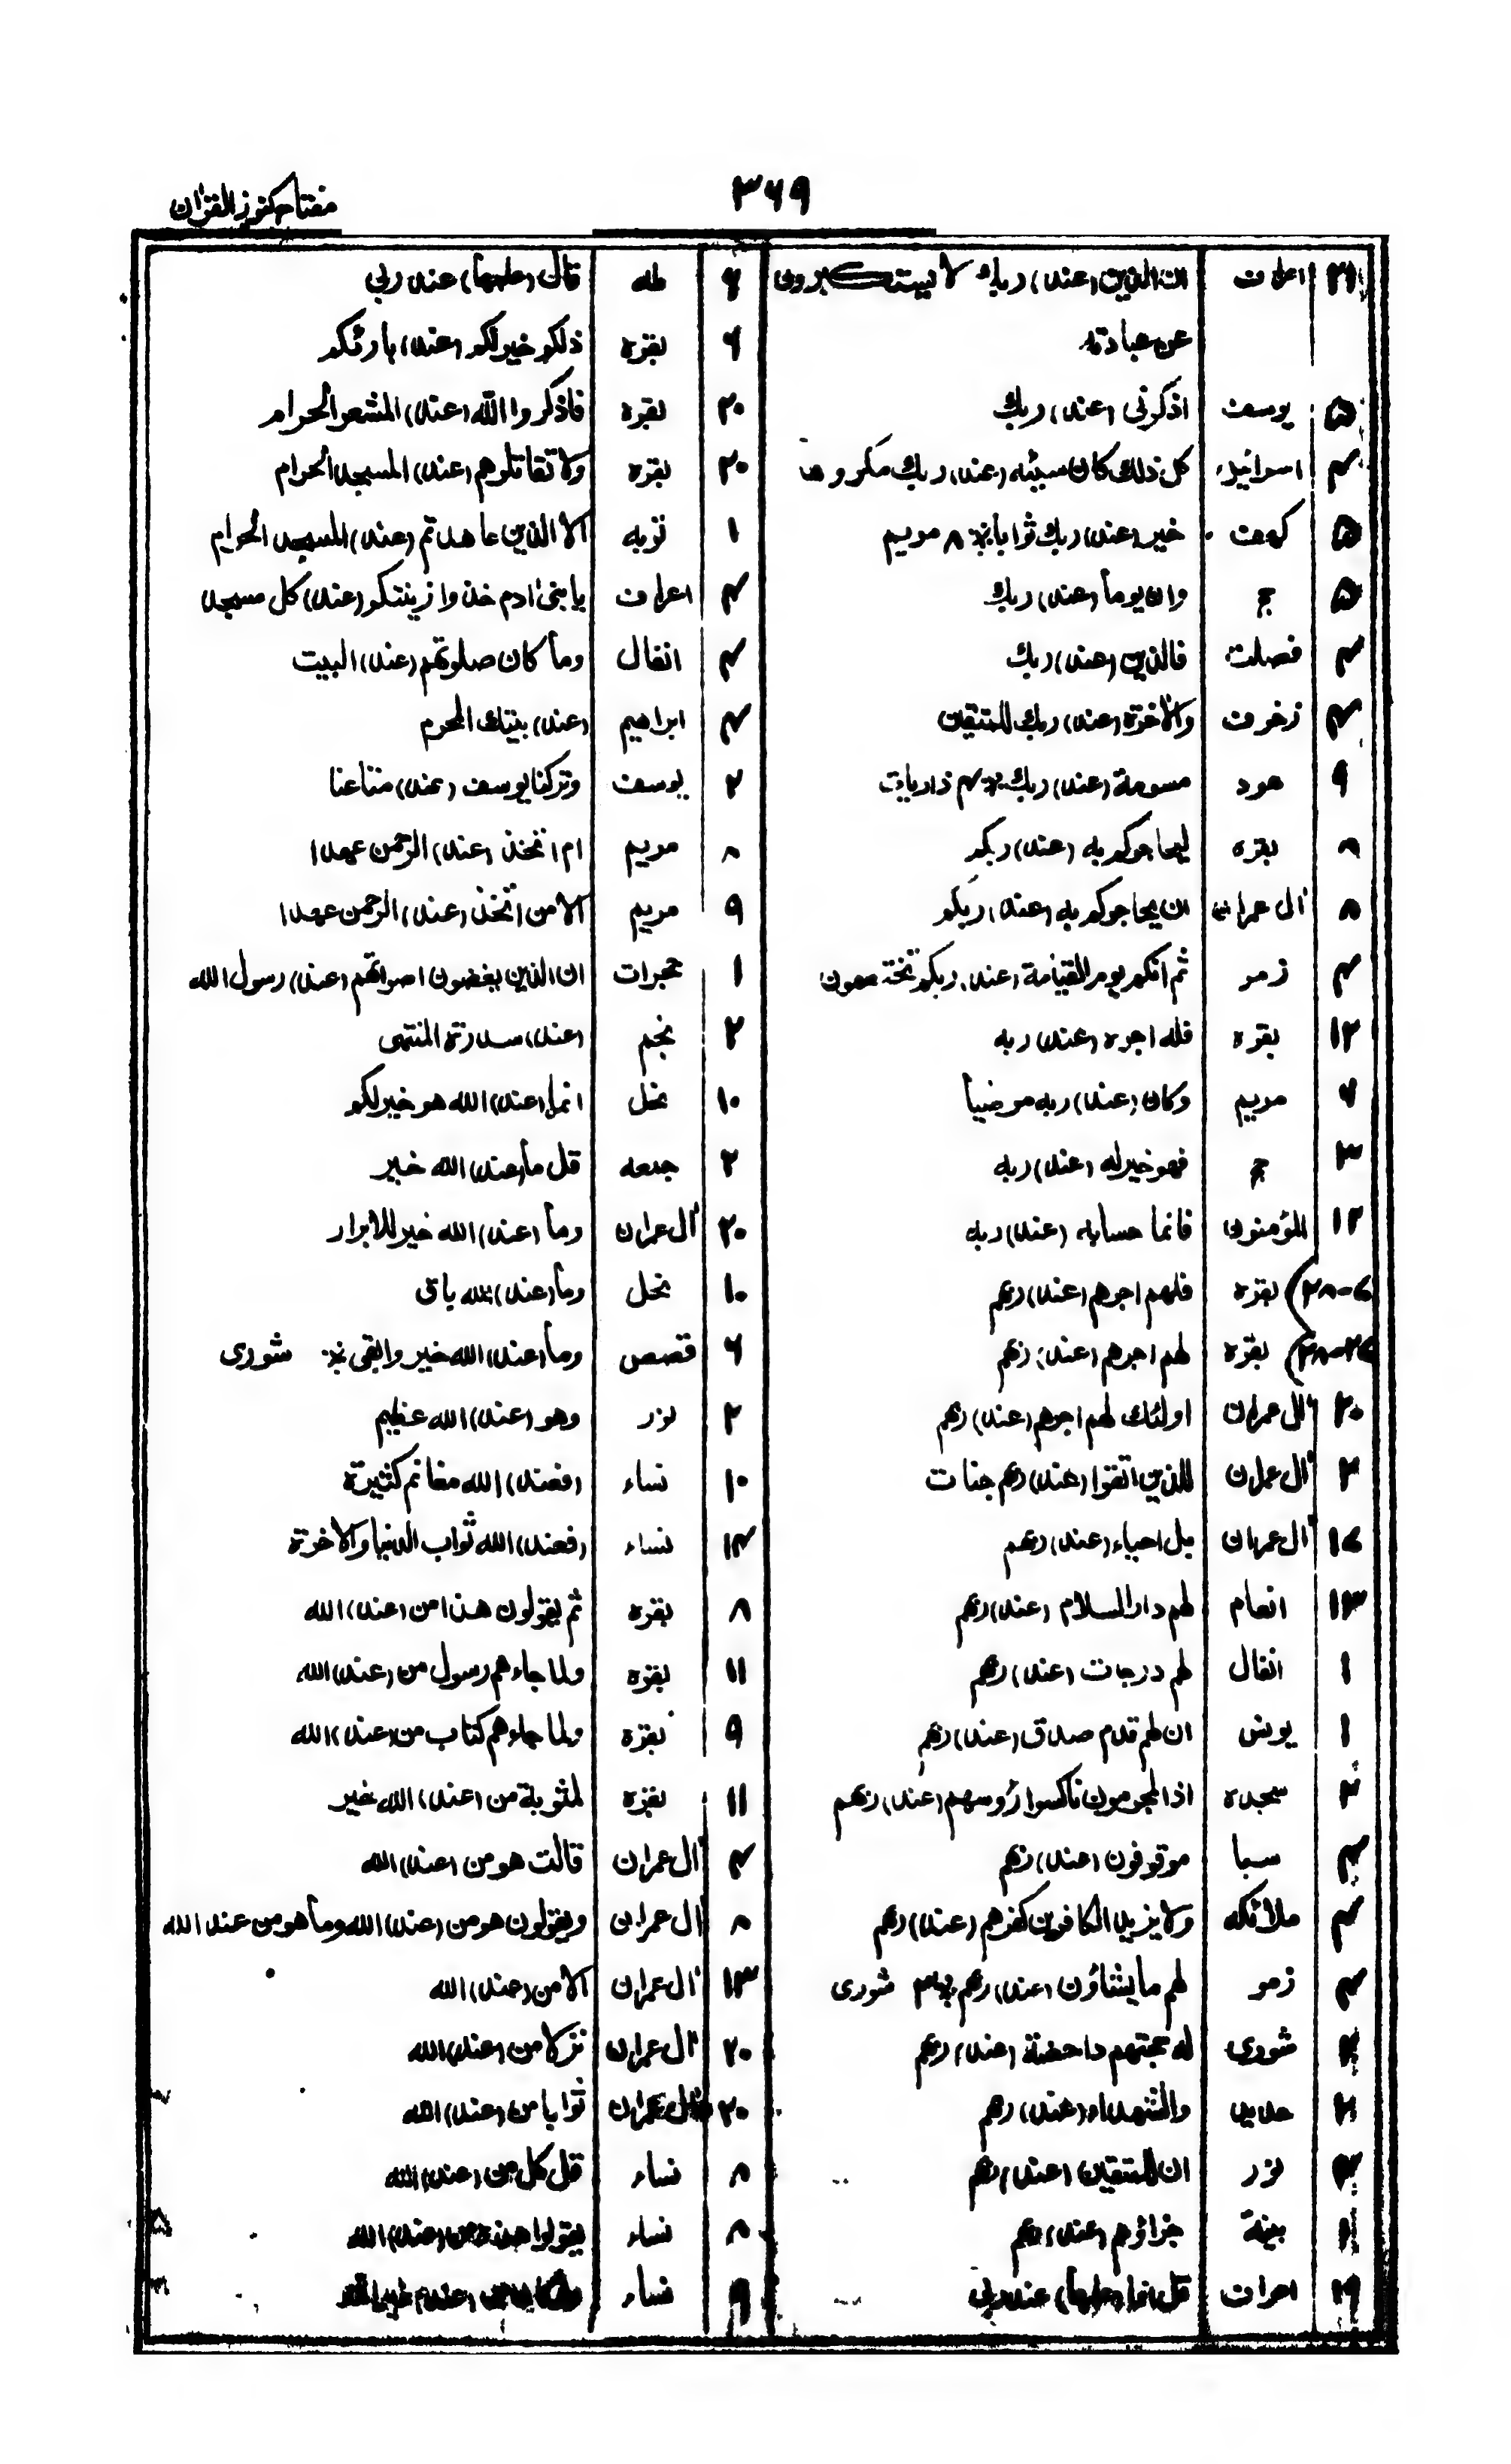 مفتاح کنوز القرٰان
۳۶۹
اعراف ان الذین (عند) ربك لا یستکبرون
عن عبادته
۵ یوسف اذکرنی (عند) ربك
۴ اسرائیل کل ذلك کان سیئه (عند) ربك مکروها
۵ کهف خیر (عند) ربك ثوابا ۸ مریم
۵ حج وان یوماً (عند) ربك
۴ فصلت فالذین (عند) ربك
۴ زخرف والاٰخرة (عند) ربك للمتقین
۶ هود مسومة (عند) ربك ۴ ذاریات
۸ بقره لیحاجوکم به (عند) ربکم
۸ اٰل عمران ان یحاجوکم به (عند) ربکم
۴ زمر ثم انکم یوم القیٰامة (عند) ربکم تختصمون
۱۲ بقره فله اجره (عند) ربه
۴ مریم وکان (عند) ربه مرضیاً
۳ حج فهو خیر له (عند) ربه
۱۲ المؤمنون فانما حسابه (عند) ربه
بقره فلهم اجرهم (عند) ربهم
بقره لهم اجرهم (عند) ربهم
۲۰ اٰل عمران اولئك لهم اجرهم (عند) ربهم
۲ اٰل عمران للذین اتقوا (عند) ربهم جنات
۱۷ اٰل عمران بل احیاء (عند) ربهم
۱۳ انعام لهم دار السلام (عند) ربهم
۱ انفال لهم درجات (عند) ربهم
۱ یونس ان لهم قدم صدق (عند) ربهم
۲ سجده اذ المجرمون ناکسوا رؤسهم (عند) ربهم
۴ سبا موقوفون (عند) ربهم
۴ ملائکه ولا یزید الکافرین کفرهم (عند) ربهم
۴ زمر لهم ما یشاؤن (عند) ربهم ۳ شوری
۲ شوری له حجتهم داحضة (عند) ربهم
۲ حدید والشهداء (عند) ربهم
نزر ان للمتقین (عند) ربهم
بینة جزاؤهم (عند) ربهم
اعراف قل انما (علمها) عند ربی
۶ طه قال (علمها) عند ربی
۶ بقره ذلکم خیر لکم (عند) بارئکم
۲۰ بقره فاذکروا الله (عند) المشعر الحرام
۲۰ بقره ولا تقاتلوهم (عند) المسجد الحرام
۱ توبه الا الذین عاهدتم (عند) المسجد الحرام
۴ اعراف یا بنی ادم خذوا زینتکم (عند) کل مسجد
۴ انفال وماً کان صلوتهم (عند) البیت
۴ ابراهیم (عند) بیتك المحرم
۲ یوسف وترکنا یوسف (عند) متاعنا
۸ مریم ام اتخذ (عند) الرحمن عهدا
۹ مریم الا من اتخذ (عند) الرحمن عهدا
۱ حجرات ان الذین یغضون اصواتهم (عند) رسول الله
۲ نجم (عند) سدرة المنتهی
۱۰ نحل انما (عند) الله هو خیر لکم
۲ جمعه قل ما (عند) الله خیر
۲۰ اٰل عمران وماً (عند) الله خیر للابرار
۱۰ نحل وماً (عند) الله باق
۶ قصص وماً (عند) الله خیر وابقی شوری
۲ نور وهو (عند) الله عظیم
۱۰ نساء (فعند) الله مغانم کثیرة
۱۴ نساء (فعند) الله ثواب الدنیا والاخرة
۸ بقره ثم یقولون هذا من (عند) الله
۱۱ بقره ولما جاءهم رسول من (عند) الله
۹ بقره ولما جاءهم کتاب من (عند) الله
۱۱ بقره لمثوبة من (عند) الله خیر
۴ اٰل عمران قالت هو من (عند) الله
۸ اٰل عمران ویقولون هو من (عند) الله وماً هو من عند الله
۱۳ اٰل عمران الا من (عند) الله
۲۰ اٰل عمران نزلا من (عند) الله
۲۰ اٰل عمران ثوابا من (عند) الله
۸ نساء قل کل من (عند) الله
۸ نساء یقولوا هذه من (عند) الله
۹ نساء